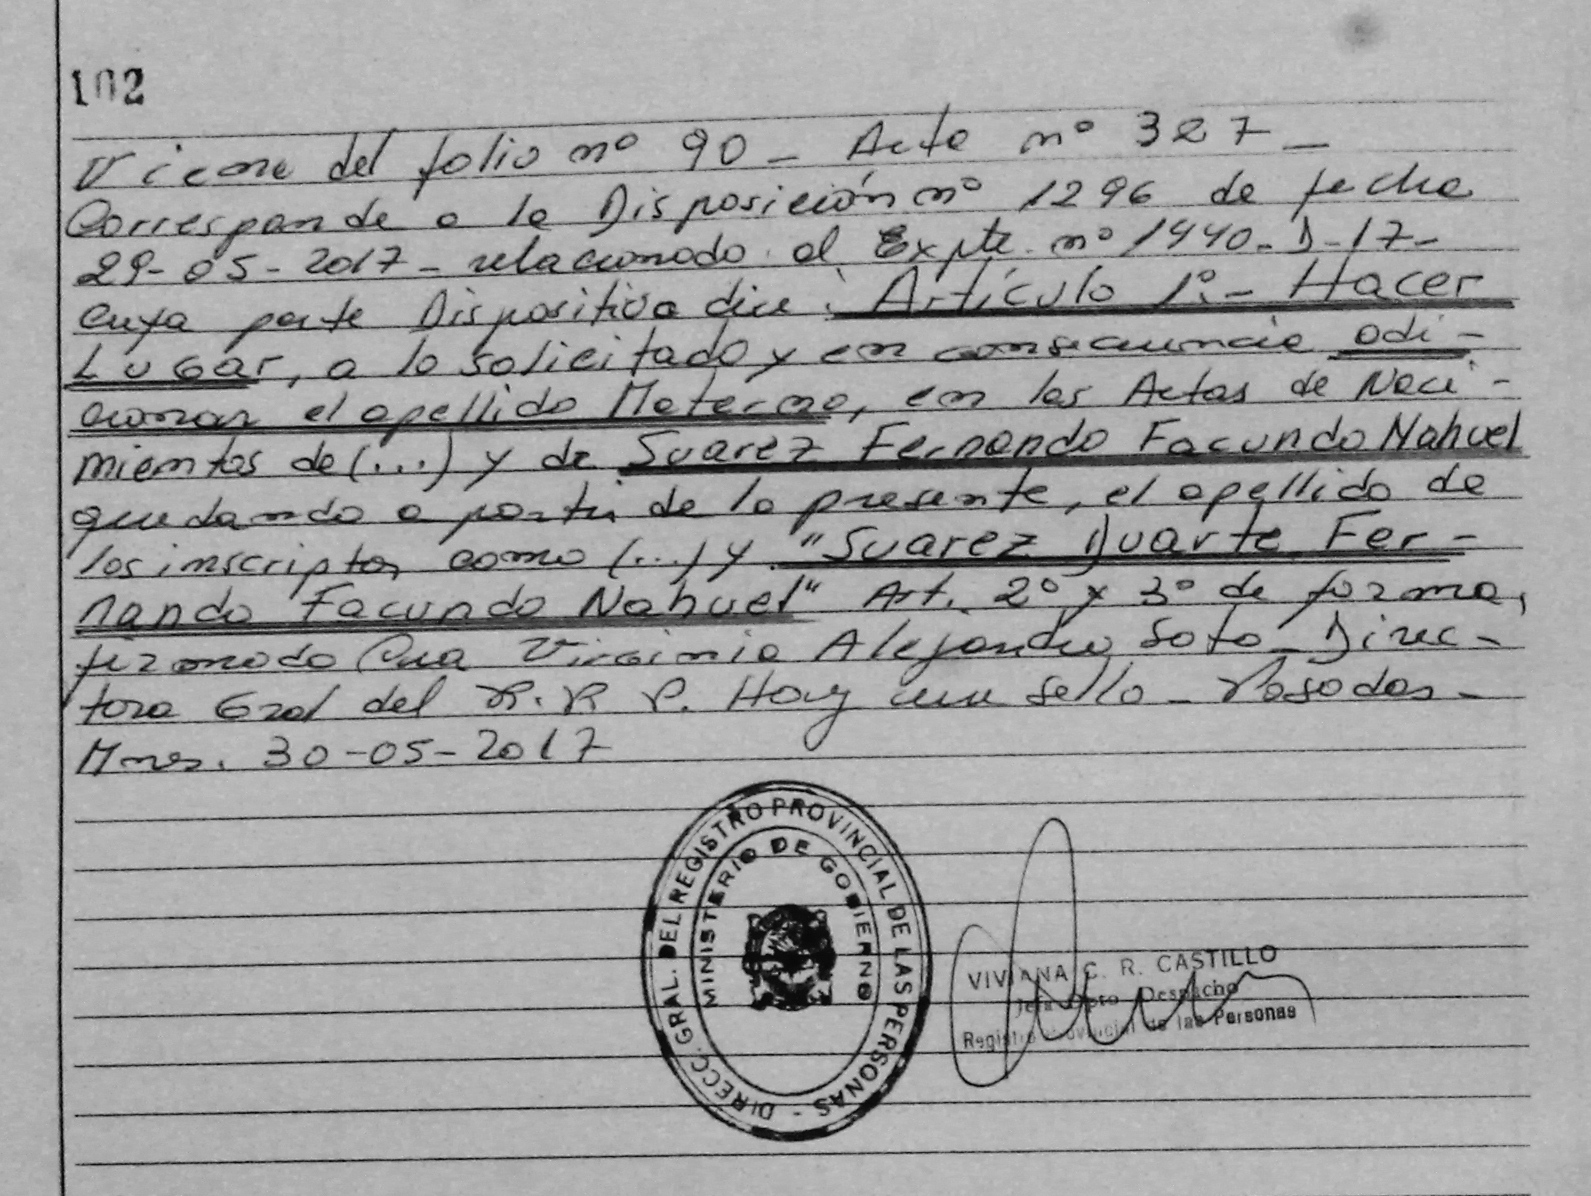 102
Viene del folio nº 90 - Acta nº 327 -
Corresponde a la Disposición nº 1296 de fecha
29-05-2017 - relacionado al Expte. nº 1440-D-17-
cuya parte Dispositiva dice: Artículo 1º.- Hacer
Lugar, a lo solicitado y en consecuencia adi-
cionar el apellido Materno, en las Actas de Naci-
mientos de (...) y de Suarez Fernando Facundo Nahuel
quedando a partir de la presente, el apellido de
los inscriptos como (...) y "Suarez Duarte Fer-
nando Facundo Nahuel" Art. 2º y 3º de forma,
firmado Virginia Alejandra Soto - Direc-
tora Gral del R. R P. Hay un sello - Posadas -
Mnes. 30-05-2017
DIRECC. GRAL. DEL REGISTRO PROVINCIAL DE LAS PERSONAS -
MINISTERIO DE GOBIERNO
VIVIANA C. R. CASTILLO
Jefa Dpto Despacho
Registro Provincial de las Personas